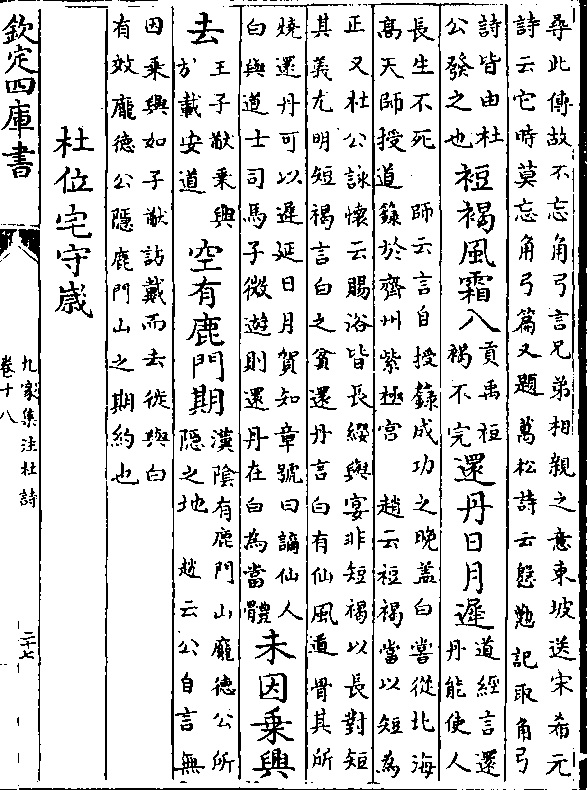 尋此傳故不忘角弓言兄弟相親之意東坡送宋希元
詩云它時莫忘角弓篇又題萬松詩云慇懃記取角弓
詩皆由杜
公發之也
裋褐風霜入
貢禹裋
褐不完
還丹日月遲
道經言還
丹能使人
長生不死 師云言自授籙成功之晚盖白嘗從北海
高天師授道籙於齊州紫極宫 趙云裋褐當以短為
正又杜公詠懷云賜浴皆長纓與宴非短褐以長對短
其義尤明短褐言白之貧還丹言白有仙風道骨其所
燒還丹可以遲延日月賀知章號曰謫仙人
白與道士司馬子微遊則還丹在白為當體
未因乘興
去
王子猷乘興
於載安道
空有鹿門期
漢陰有鹿門山龐德公所
隱之地 趙云公自言無
因乘興如子猷訪戴而去從與白
有效龐德公隱鹿門山之期約也
杜位宅守歲
欽定四庫書
九家集注杜詩
卷十八
二十七